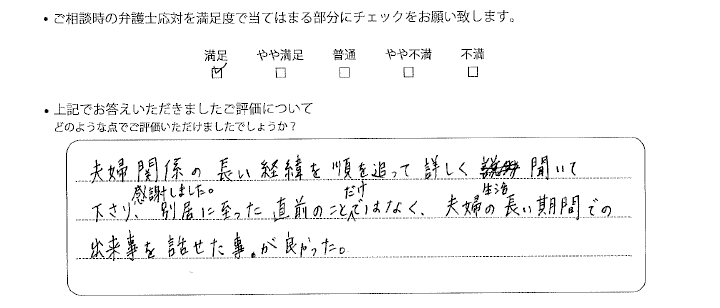 • ご相談時の弁護士応対を満足度で当てはまる部分にチェックをお願い致します。
満足 やや満足 普通 やや不満 不満
☑ □ □ □ □
• 上記でお答えいただきましたご評価について
どのような点でご評価いただけましたでしょうか？
夫婦関係の長い経緯を順を追って詳しく聞いて
下さり、感謝しました。別居に至った直前のことだけではなく、夫婦の生活長い期間での
出来事を話せた事。が良かった。